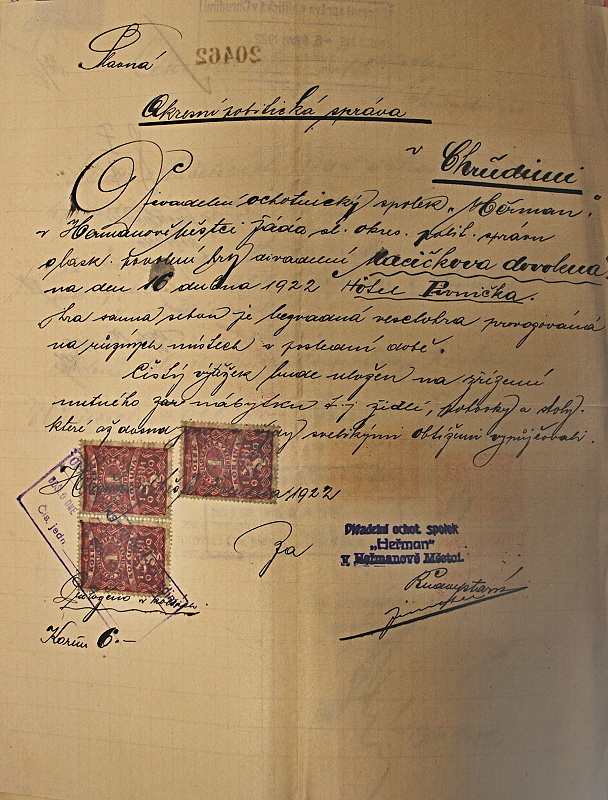 Slavná
20462
Okresní politická správa
v Chrudimi
Divadelní ochotnický spolek „Heřman“
v Heřmanově Městci žádá sl. okres. polit. správu
o lask. povolení hry divadelní
na den 16 dubna 1922 Hôtel
hra sama sebou je bezvadná veselohra provozováná
na různých místech v poslední době.
Čistý výtěžek bude uložen na zřízení
nutného nábytku t.j. židlí, pohovky a stoly.
které až dosud s velikými obtížemi vypůjčovali.
1922
Za
Divadelní ochot. spolek
„Heřman“
v Heřmanově Městci.
Čís. jedn.
Korun 6.–